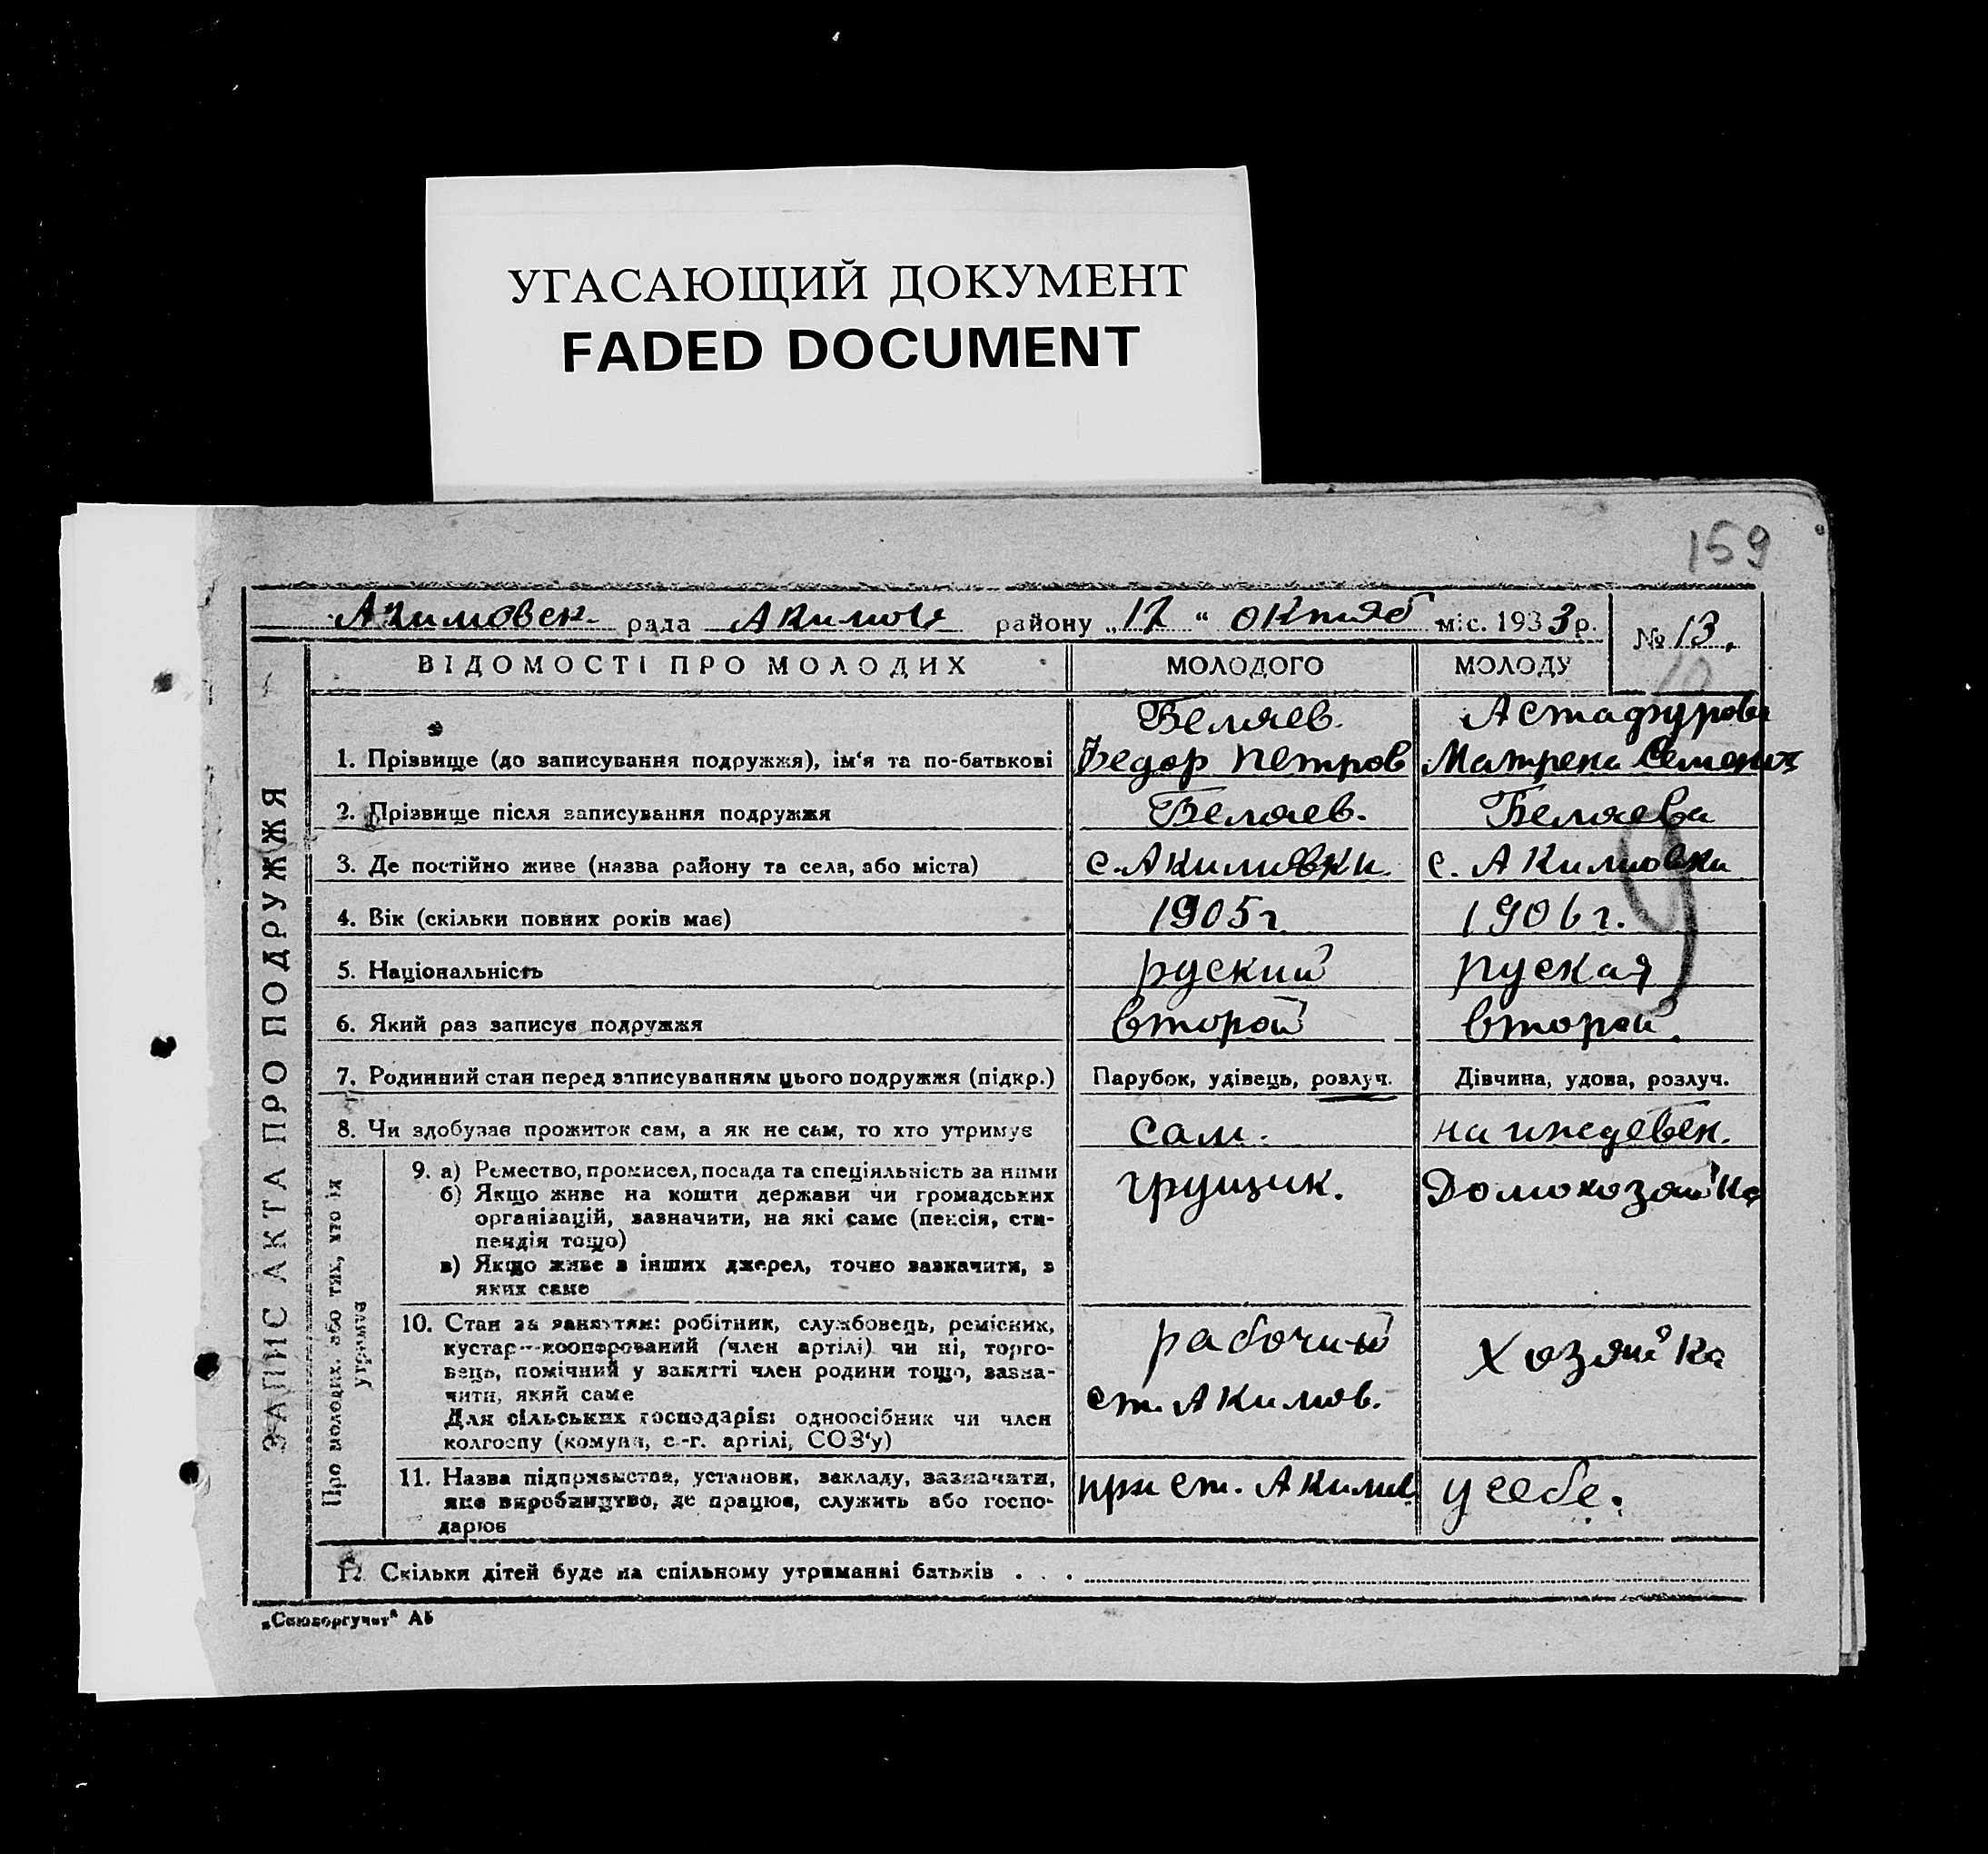 УГАСАЮЩИЙ ДОКУМЕНТ
FADED DOCUMENT
159
Акимовск. рада Акимов району „17" октяб міс. 1933 р. № 13.
10
ЗАПИС АКТА ПРО ПОДРУЖЖЯ
ВІДОМОСТІ ПРО МОЛОДИХ МОЛОДОГО МОЛОДУ
Беляев. Астафурова
1. Прізвище (до записування подружжя), ім'я та по-батькові Федор Петров Матрена Семенов
2. Прізвище після записування подружжя Беляев. Беляева
3. Де постійно живе (назва району та села, або міста) с. Акимовки. с. Акимовки
4. Вік (скільки повних років має) 1905 г. 1906 г.
5. Національність руский руская
6. Який раз записує подружжя второй второй.
7. Родинний стан перед записуванням цього подружжя (підкр.) Парубок, удівець, розлуч. Дівчина, удова, розлуч.
8. Чи здобуває прожиток сам, а як не сам, то хто утримує сам. на иждевен.
Про молодих або тих, хто їх утримує
9. а) Ремество, промисел, посада та спеціяльність за ними грущик. Домохозяйка
б) Якщо живе на кошти держави чи громадських
організацій, зазначити, на які саме (пенсія, сти-
пендія тощо)
в) Якщо живе з інших джерел, точно зазначити, з
яких саме
10. Стан за заняттям: робітник, службовець, ремісник, рабочий хозяйка
кустар—кооперований (член артілі) чи ні, торго-
вець, помічний у занятті член родини тощо, зазна-
чити, який саме ст. Акимов.
Для сільських господарів: одноосібник чи член
колгоспу (комуна, с.-г. артілі, СОЗ'у)
11. Назва підприємства, установи, закладу, зазначати, при ст. Акимов у себе.
яке виробництво, де працює, служить або госпо-
дарює
12. Скільки дітей буде на спільному утриманні батьків . . .
„Союзоргучет" А5